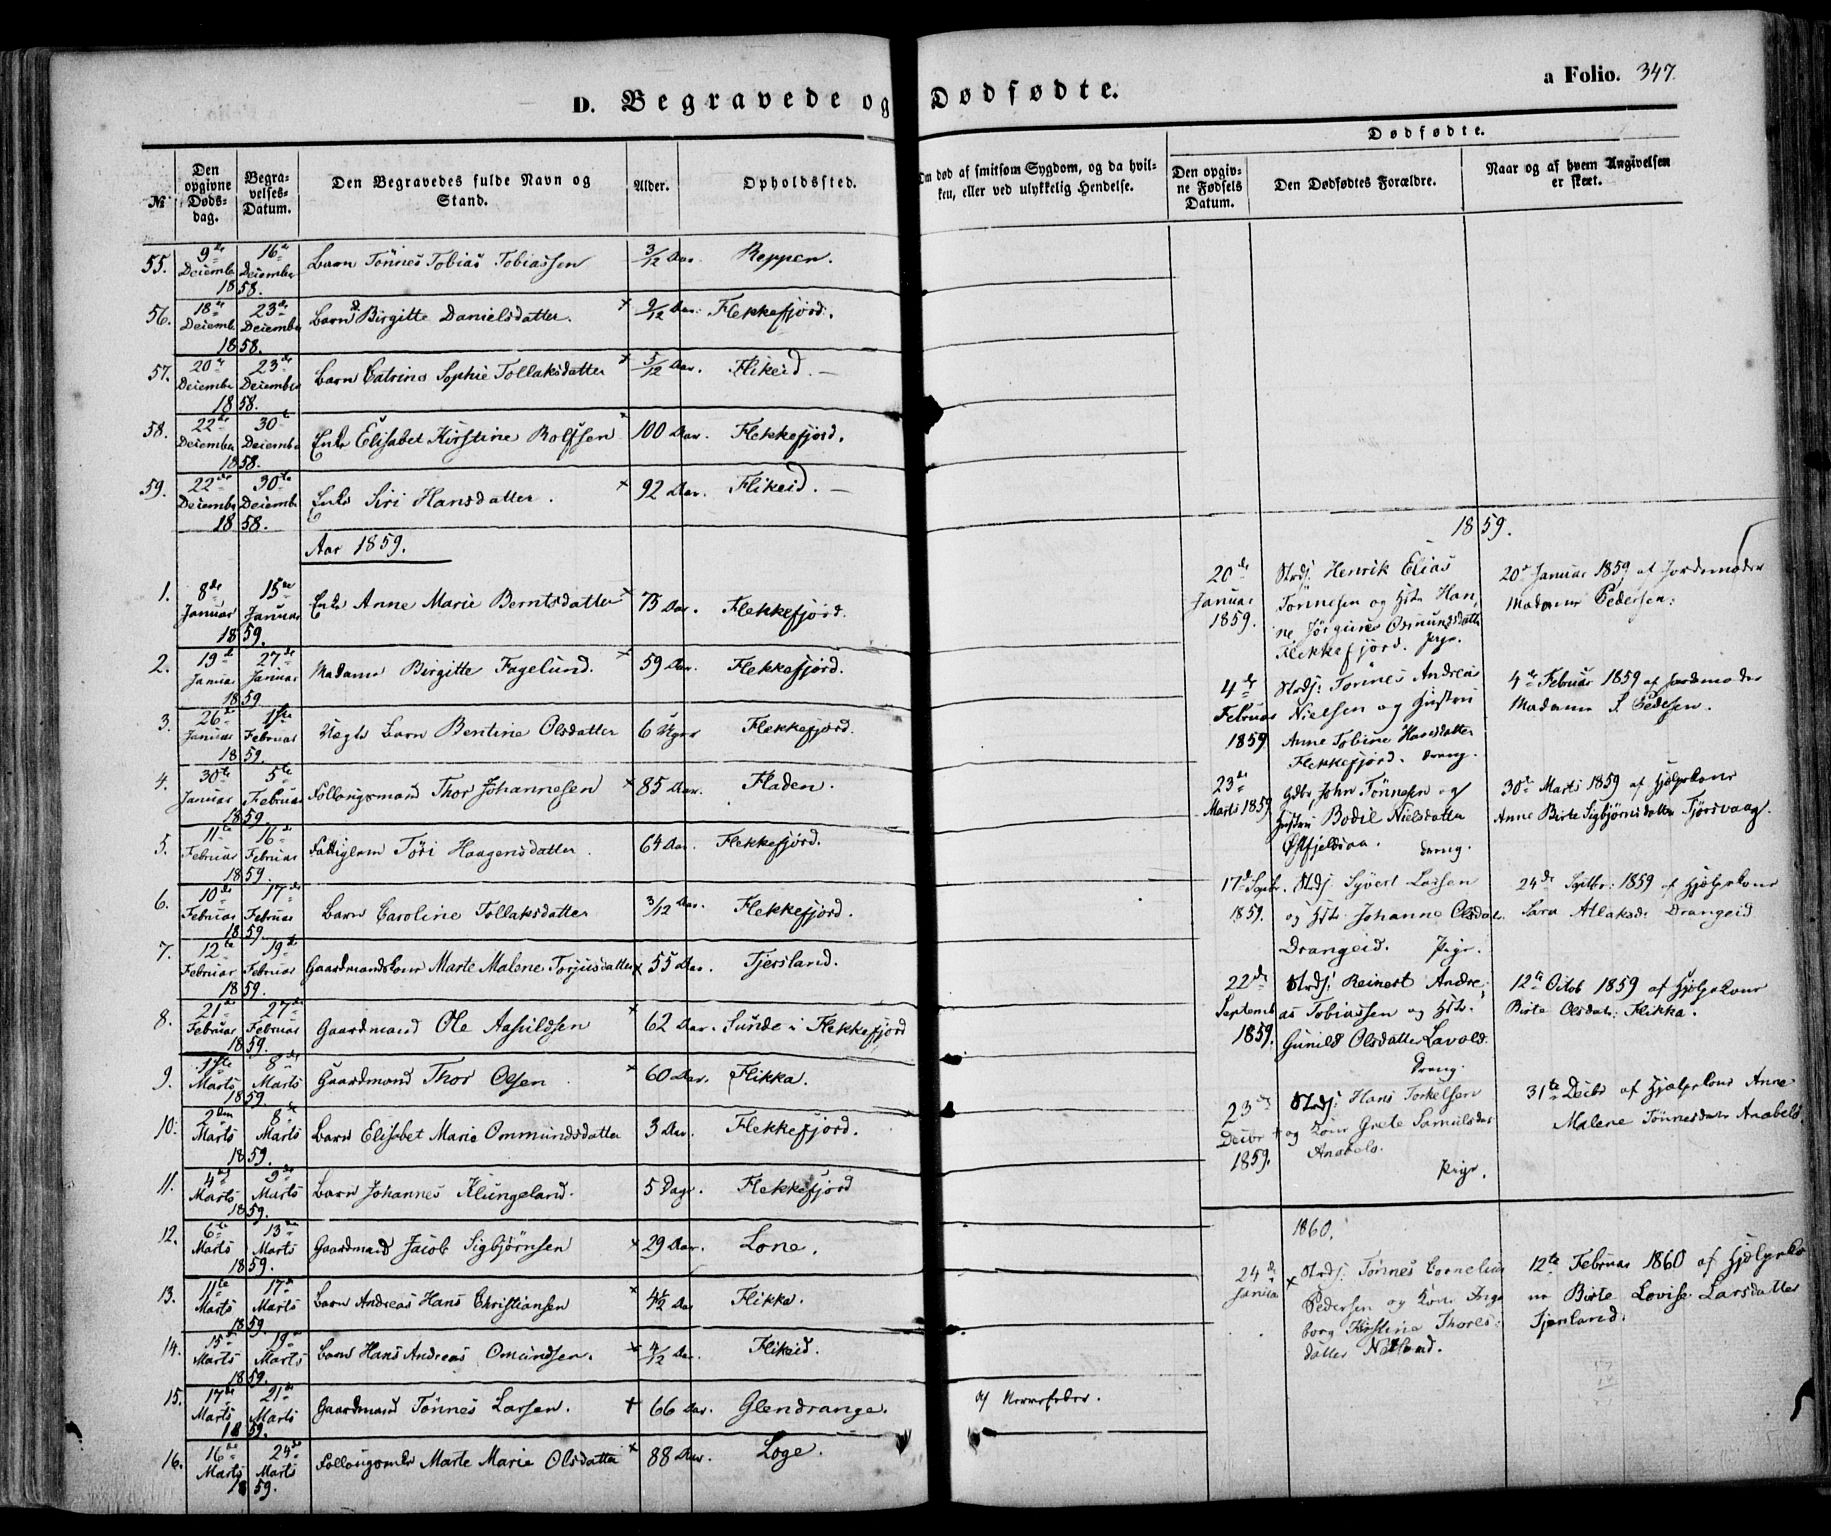 D. Begravede og Dødfødte.
a Folio. 347.
№
Den opgivne Dødsdag.
Begravelses-Datum.
Den Begravedes fulde Navn og Stand.
Alder.
Opholdssted.
Om død af smitsom Sygdom, og da hvilken, eller ved ulykkelig Hendelse.
Dødfødte.
Den opgivne Fødsels Datum.
Den Dødfødtes Forældre.
Naar og af hvem Angivelsen er skeet.
55. 9de Decemb 16de December 1858. Barn Tønnes Tobias Tobiassen 3/12 Aar. Reppen.
56. 18de Decembr 23de December 1858. Barn Birgitte Danielsdatter. + 9/12 Aar. Flekkefjord.
57. 20de Decembr 23de December 1858. Barn Catrine Sophie Tollaksdatter + 5/12 Aar. Flikeid. —
58. 22de December 30te December 1858. Enke Elisabet Kirstine Rolfsen + 100 Aar. Flekkefjord.
59. 22de December 30te December 1858. Enke Siri Hansdatter. + 92 Aar. Flikeid. —
Aar 1859.
1. 8de Januar 15de Januar 1859. Enke Anne Marie Berntsdatter + 75 Aar. Flekkefjord.
2. 19de Januar 27de Januar 1859 Madame Birgitte Fagelund. + 59 Aar. Flekkefjord.
3. 26de Januar 1ste Februar 1859. Uegte Barn Bentine Olsdatter 6 Uger Flekkefjord.
4. 30te Januar 5te Februar 1859. Follougsmand Thor Johannesen + 85 Aar. Fladen.
5. 11te Februar 16de Februar 1859. Fattiglem Tøri Haagensdatter. 64 Aar. Flekkefjord.
6. 10de Februar 17de Februar 1859 Barn Caroline Tollaksdatter 3/12 Aar. Flekkefjord.
7. 12te Februar 19de Februar 1859. Gaardmandskone Marte Malene Torjusdatter + 55 Aar. Tjersland.
8. 21de Februar 27de Februar 1859. Gaardmand Ole Aasuldsen + 62 Aar. Sunde i Flekkefjord
9. 1ste Marts 8de Marts 1859. Gaardmand Thor Olsen + 60 Aar. Flikka.
10. 2den Marts 8de Marts 1859. Barn Elisabet Marie Ommundsdatter 3 Aar. Flekkefjord.
11. 4de Marts 9de Marts 1859. Barn Johannes Klungeland. 5 Dage. Flekkefjord
12. 6te Marts 13de Marts 1859. Gaardmand Jacob Sigbjørnsen + 29 Aar. Lone.
13. 11te Marts 17de Marts 1859 Barn Andreas Hans Christiansen + 4½ Aar Flikka.
14. 15de Marts 19de Marts 1859. Barn Hans Andreas Omundsen. + 4/12 Aar. Flikeid.
15. 17de Marts 21de Marts 1859. Gaardmand Tønnes Larsen. + 66 Aar. Glendrange. af Nervefeber.
16. 16de Marts 24de Marts 1859. Marte Marie Olsdatter + 88 Aar. Loge.
1859.
20de Januar 1859.
Strdj. Henrik Elias
Tønnesen og Hst. Han,
ne Jørgine Osmundsdatter
Flekkefjord. pige.
20de Januar 1859 af Jordemoder
Madame Pedersen.
4de Februar 1859
Strdj: Tønnes Andreas
Nielsen og Hustru
Anne Tobine Hansdatter
Flekkefjord. dreng.
4de Februar 1859 af Jordemoder
Madame S. Pedersen.
23de Marts 1859.
Gdbr. John Tønnesen og
Hustru Bodil Nielsdatter
Østfjeldsaa. dreng.
30te Marts 1859 af Hjelpekone
Anne Birte Sigbjørnsdatter Tjørsvaag.
17de Septbr. 1859.
Strdj. Syvert Larsen
og Hst. Johanne Olsdat.
Drangeid. Pige.
24de Septbr: 1859 af Hjelpekone
Sara Atlaksd. Drangeid
22de Septemb 1859.
Strdj: Reinert Andre-
as Tobiassen og Hst.
Gunild Olsdatter Lavold.
dreng.
12te Octob 1859 af Hjelpekone
Birte Olsdat. Flikka.
23de Decbr 1859.
Strdj: Hans Torkelsen
+ og Kone Grete Samuelsdat
Anabelø.
Pige.
31te Decbr af Hjelpekone Anne
Malene Tønnesdatter Anabelø.
1860.
24de Januar
+ Strdj: Tønnes Cornelius
Pedersen og Kone Inge
borg Kirstine Thores-
datter.
12te Februar 1860 af Hjelpeko
ne Birte Lovise Larsdatter